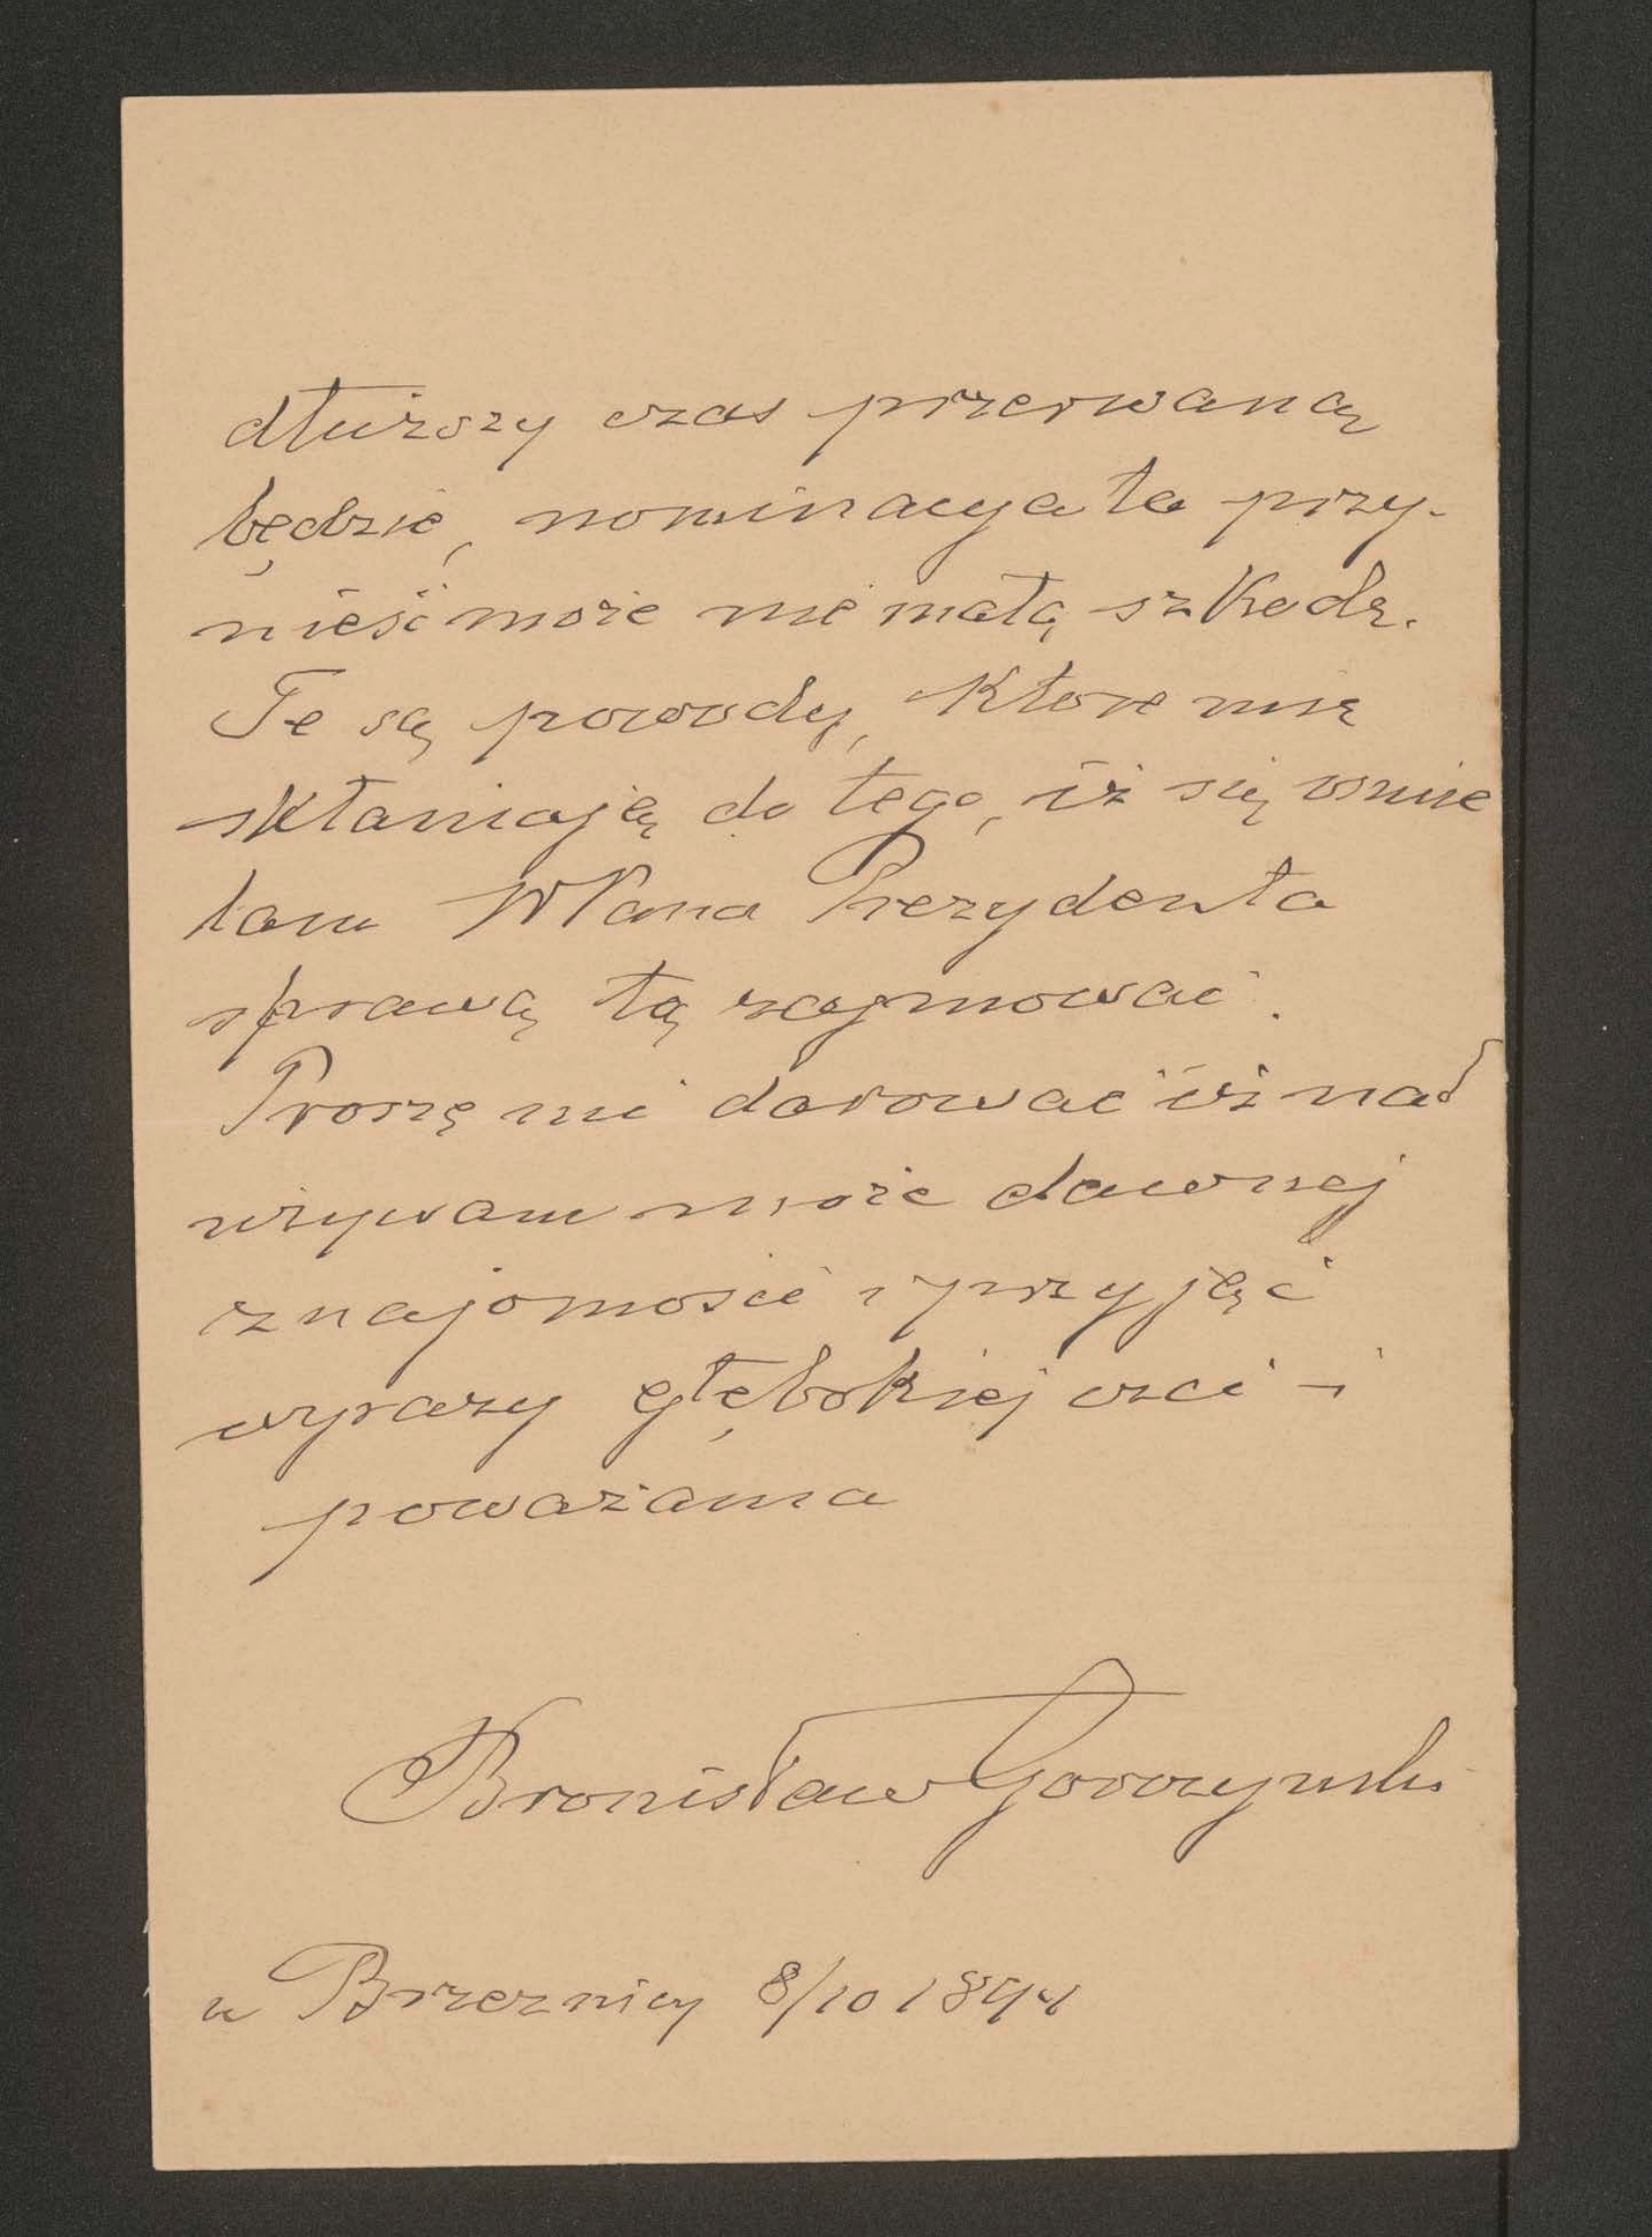 dłuższy czas przerwaną
będzie, nominacya ta przy-
nieść może nie małą szkodę.
Te są powody, które mię
skłaniają do tego, iż się ośmie
lam WPana Prezydenta
sprawą tą zajmować.
Proszę mi darować iż nad
używam może dawnej
znajomości i przyjąć
wyrazy głębokiej czci i
poważania
Bronisław Gorczyński
w Brzeznicy 8/10 1894